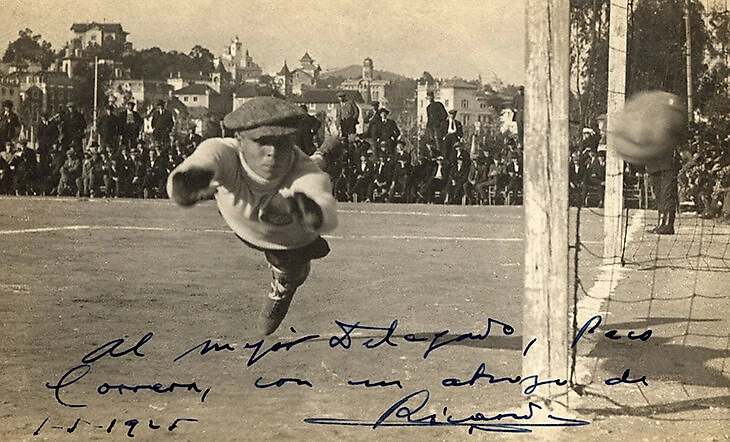 Al mejor Delegado, Paco
Correra, con un abrazo de
1-5-1925 Ricardo